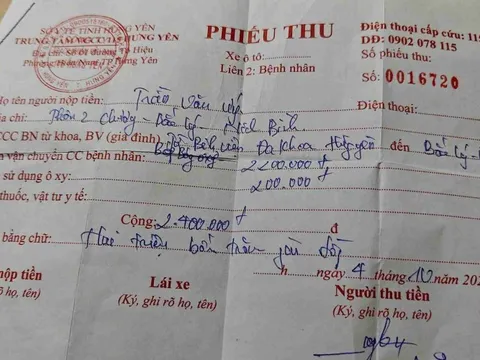 SỞ Y TẾ TỈNH HƯNG YÊN
TRUNG TÂM CẤP CỨU 115 HƯNG YÊN
Địa chỉ: Số 01 đường Tô Hiệu
Phường Hiến Nam, TP Hưng Yên
PHIẾU THU
Xe ô tô:
Liên 2: Bệnh nhân
Điện thoại cấp cứu: 115
DĐ: 0902 078 115
Số phiếu thu:
Số: 0016720
Họ tên người nộp tiền: Trần Văn
Điện thoại:
chỉ: Thôn 2 - Bắc Lý
CCC BN từ khoa, BV (gia đình) Bệnh viện Đa khoa đến Bắc Lý
vận chuyển CC bệnh nhân: 2200.000 đ
sử dụng ô xy: 200.000 đ
thuốc, vật tư y tế:
Cộng: 2.400.000 đ đ
bằng chữ: Hai triệu bốn trăm đồng
h ngày 4 tháng 10 năm 202
nộp tiền
(Ký, ghi rõ họ, tên)
Lái xe
(Ký, ghi rõ họ, tên)
Người thu tiền
(Ký, ghi rõ họ, tên)